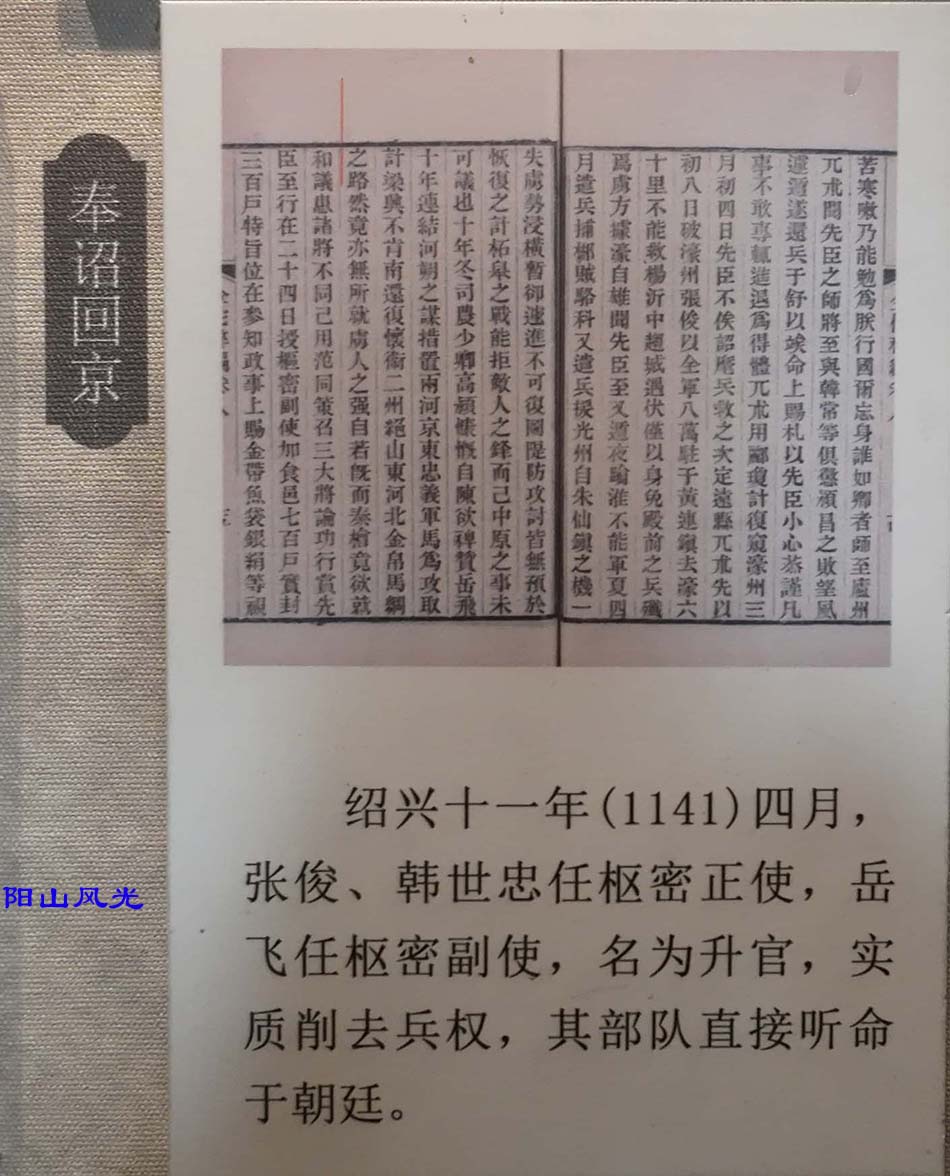 奉诏回京
苦寒嗽乃能勉為朕行國爾忘身誰如卿者師至廬州
兀朮聞先臣之師將至與韓常等俱懲潁昌之敗望風
遽遁遂還兵于舒以竢命上賜札以先臣小心恭謹凡
事不敢專輒進退為得體兀朮用酈瓊計復窺濠州三
月初四日先臣不俟詔麾兵救之次定遠縣兀朮先以
初八日破濠州張俊以全軍八萬駐于黃連鎮去濠六
十里不能救楊沂中趨城遇伏僅以身免殿前之兵殲
焉虜方據濠自雄聞先臣至又遁夜踰淮不能軍夏四
月遣兵捕郴賊駱科又遣兵援光州自朱仙鎮之機一
失虜勢浸橫暫卻遽進不可復圖隄防攻討皆無預於
恢復之計柘皋之戰能拒敵人之鋒而已中原之事未
可議也十年冬司農少卿高穎慷慨自陳欲裨贊岳飛
十年連結河朔之謀措置兩河京東忠義軍馬為攻取
計梁興不肯南還復懷衛二州絕山東河北金帛馬綱
之路然竟亦無所就虜人之强自若既而秦檜竟欲就
和議患諸將不同己用范同策召三大將論功行賞先
臣至行在二十四日授樞密副使加食邑七百戶實封
三百戶特旨位在參知政事上賜金帶魚袋銀絹等視
绍兴十一年(1141)四月，
张俊、韩世忠任枢密正使，岳
飞任枢密副使，名为升官，实
质削去兵权，其部队直接听命
于朝廷。
阳山风光